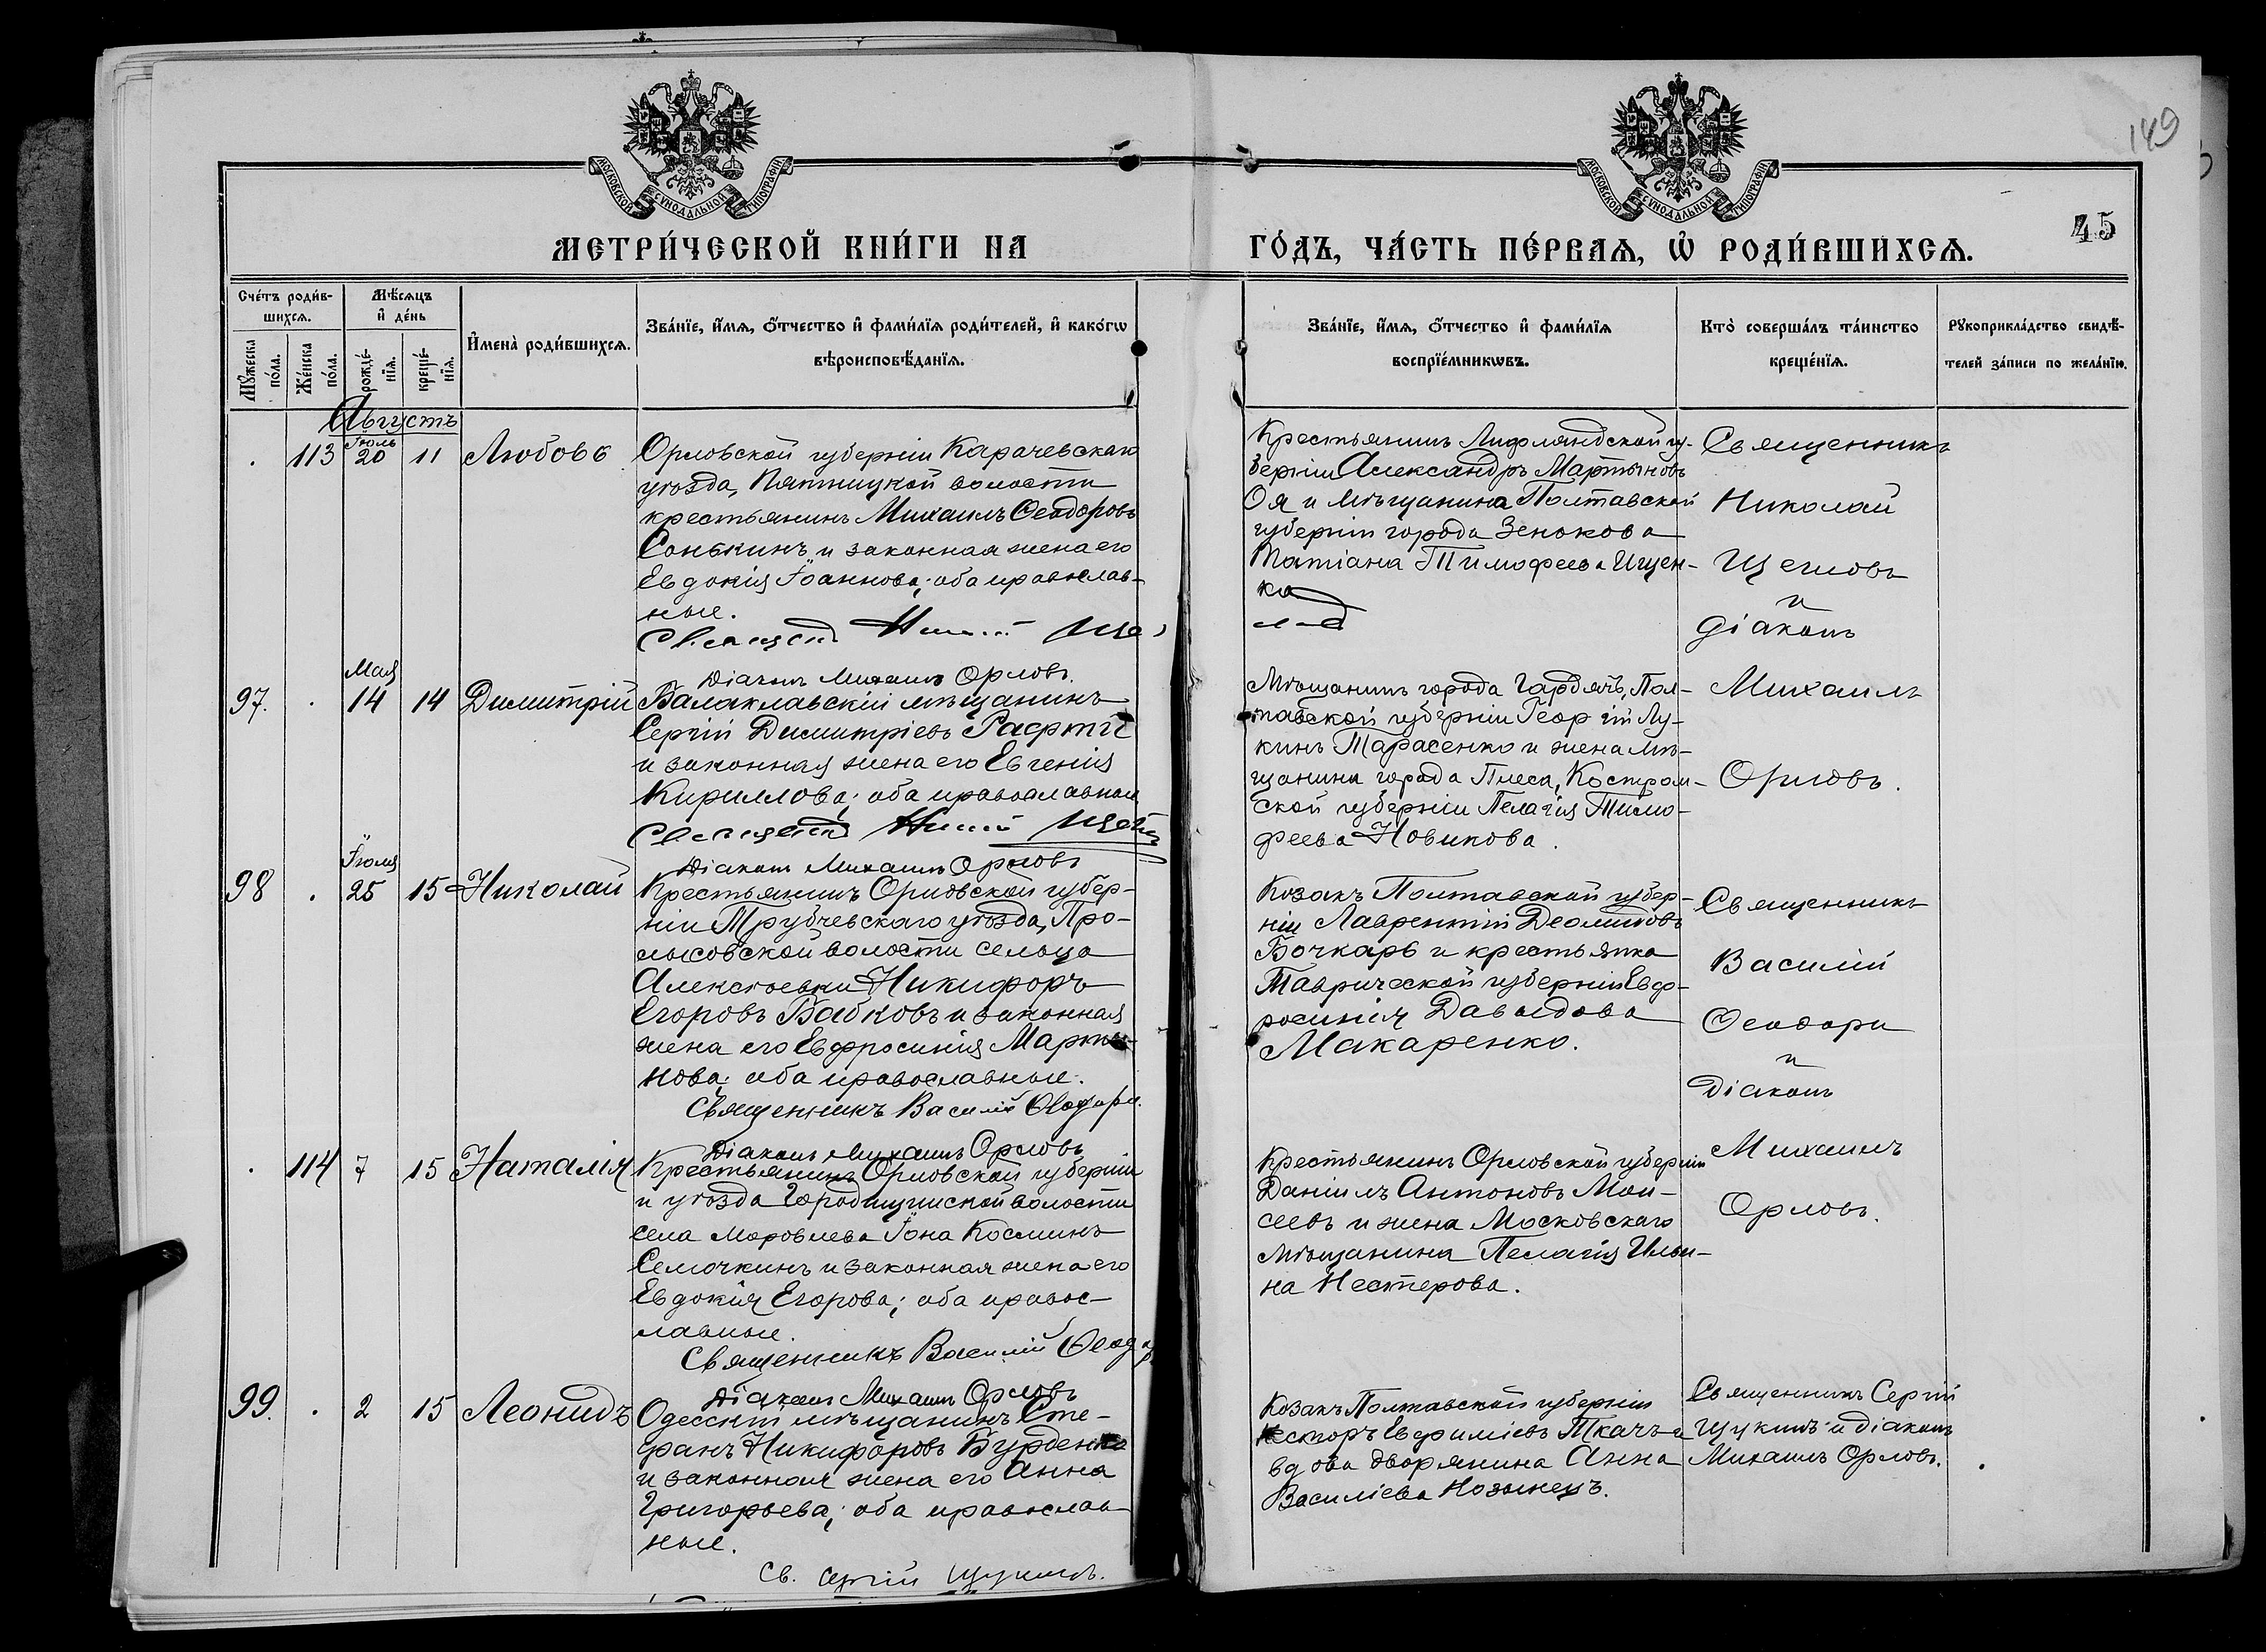 149
45
МОСКОВСКОЙ СѴНОДАЛЬНОЙ ТИПОГРАФІИ
МОСКОВСКОЙ СѴНОДАЛЬНОЙ ТИПОГРАФІИ
МЕТРИ́ЧЕСКОЙ КНИ́ГИ НА
ГО́ДЪ, ЧА́СТЬ ПЕ́РВАѦ, Ѡ҆ РОДИ́ВШИХСѦ.
Сче́тъ роди́в-
шихсѧ.
Мꙋ́жеска
по́ла.
Же́нска
по́ла.
Мѣ́сѧцъ
и҆ де́нь
рожде́-
нїѧ.
креще́-
нїѧ.
И҆мена̀ роди́вшихсѧ.
Зва́нїе, и҆́мѧ, ѻ҆́тчество и҆ фами́лїѧ роди́телей, и҆ како́гѡ
вѣроисповѣ́данїѧ.
Зва́нїе, и҆́мѧ, ѻ҆́тчество и҆ фами́лїѧ
воспрїе́мникѡвъ.
Кто̀ соверша́лъ та́инство
креще́нїѧ.
Рꙋкоприкла́дство свидѣ́-
телей за́писи по жела́нїю.
Августъ
113
Іюль
20
11
Любовь
Орловской губерніи Карачевскаго
уѣзда, Пятницкой волости
крестьянинъ Михаилъ Ѳеодоровъ
Сонькинъ и законная жена его
Евдокія Іоаннова; оба православ-
ные.
Діаконъ Михаилъ Орловъ.
Крестьянинъ Лифляндской гу-
берніи Александръ Мартыновъ
Оя и мѣщанина Полтавской
губерніи города Зенькова
Татіана Тимофеева Ищен-
ко
Священникъ
Николай
Щегловъ
и
діаконъ
Михаилъ
Орловъ.
97.
Мая
14
14
Димитрій
Балаклавскій мѣщанинъ
Сергій Димитріевъ
и законная жена его Евгенія
Кириллова; оба православные
Діаконъ Михаилъ Орловъ
Мѣщанинъ города Гардячъ, Пол-
тавской губерніи Георгій Лу-
кинъ Тарасенко и жена мѣ-
щанина города Плеса, Костром-
ской губерніи Пелагія Тимо-
феева Новикова.
98
Іюля
25
15
Николай
Крестьянинъ Орловской губер-
ніи Трубчевскаго уѣзда, Про-
лысовской волости сельца
Алексѣевки Никифоръ
Егоровъ Бабковъ и законная
жена его Евфросинія Марты-
нова; оба православные.
Священникъ Василій Ѳеодори.
Діаконъ Михаилъ Орловъ
Козакъ Полтавской губер-
ніи Лаврентій Деомидовъ
Бочкарь и крестьянка
Таврической губерніи Евф-
росинія Давыдова
Макаренко.
Священникъ
Василій
Ѳеодори
и
діаконъ
Михаилъ
Орловъ.
114
7
15
Наталія
Крестьянинъ Орловской губерніи
и уѣзда Городищенской волости
села Моровлева Іона Косминъ
Семочкинъ и законная жена его
Евдокія Егорова; оба правос-
лавные.
Священникъ Василій Ѳеодори
Діаконъ Михаилъ Орловъ
Крестьянинъ Орловской губерніи
Даніилъ Антоновъ Мои-
сеевъ и жена Московскаго
мѣщанина Пелагія Ильи-
на Нестерова.
99.
2
15
Леонидъ
Одесскій мѣщанинъ Сте-
фанъ Никифоровъ Бурденко
и законная жена его Анна
Григорьева; оба православ-
ные.
Св. Сергій Щукинъ.
Козакъ Полтавской губерніи
Несторъ Евфиміевъ Ткачъ и
вдова дворянина Анна
Василіева Козинецъ.
Священникъ Сергій
Щукинъ и діаконъ
Михаилъ Орловъ.